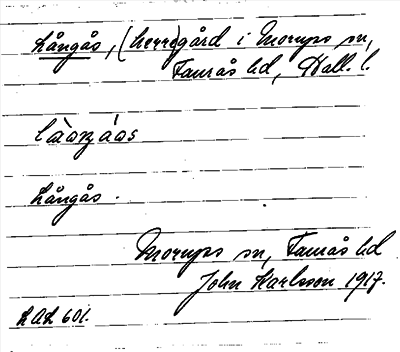 Långås, (herre)gård i Morups sn,
Faurås hd, Hall. l.
Långås.
Morups sn, Faurås hd
John Karlsson 1917.
LAL 601.